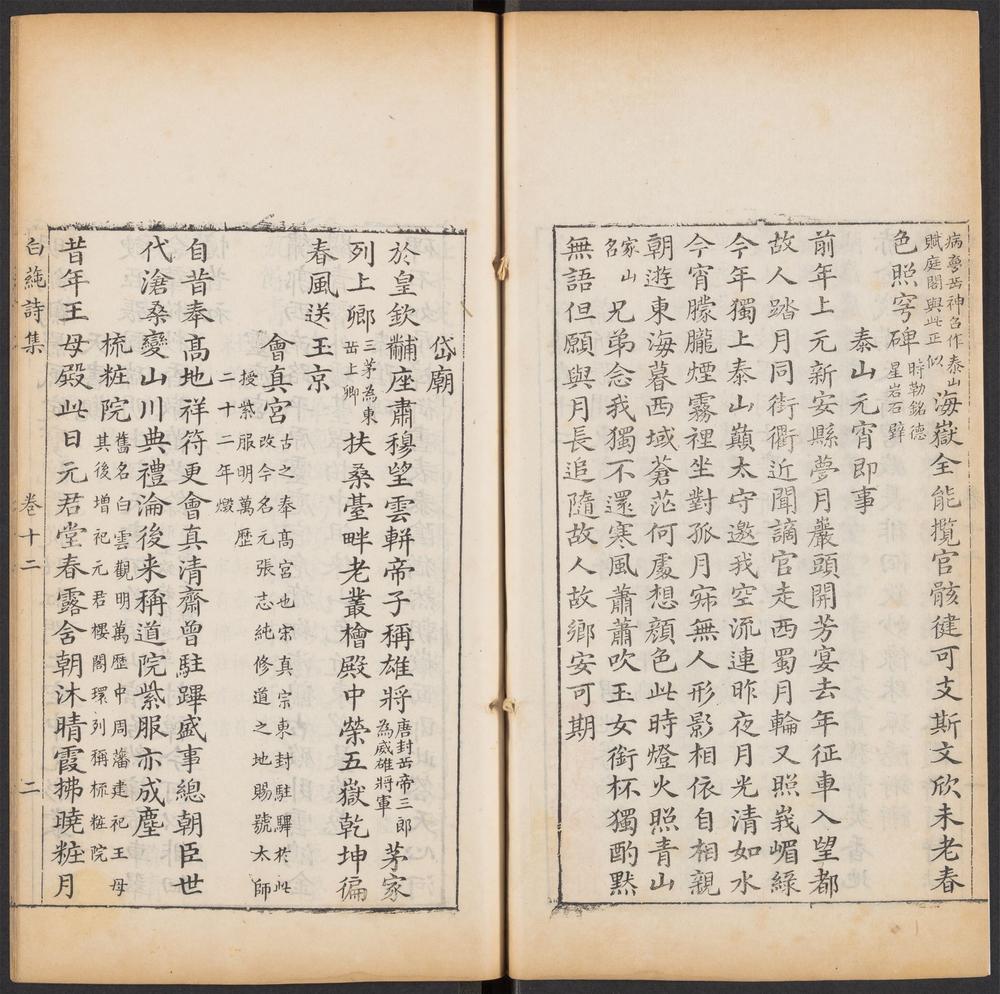 病夢岳神召作泰山
賦庭閣與此正似
海嶽全能攬官骸健可支斯文欣未老春
色照穹碑
時勒銘德
星岩石壁
泰山元宵即事
前年上元新安縣夢月巖頭開芳宴去年征車入望都
故人踏月同街衢近聞謫官走西蜀月輪又照峩嵋綠
今年獨上泰山巔太守邀我空流連昨夜月光清如水
今宵朦朧煙霧裡坐對孤月寂無人形影相依自相親
朝遊東海暮西域蒼茫何處想顏色此時燈火照青山
家山
名
兄弟念我獨不還寒風蕭蕭吹玉女銜杯獨酌黙
無語但願與月長追隨故人故鄉安可期
岱廟
於皇欽黼座肅穆望雲軿帝子稱雄將
唐封岳帝三郎
為威雄將軍
茅家
列上卿
三茅為東
岳上卿
扶桑臺畔老叢檜殿中榮五嶽乾坤徧
春風送玉京
會真宮
古之奉高宮也宋真宗東封駐驆於此
改今名元張志純修道之地賜號太師
授紫服明萬歷
二十二年燬
自昔奉高地祥符更會真清齋曾駐蹕盛事總朝臣世
代滄桑變山川典禮淪後来稱道院紫服亦成塵
梳粧院
舊名白雲觀明萬歷中周藩建祀王母
其後增祀元君樓閣環列稱梳粧院
昔年王母殿此日元君堂春露含朝沐晴霞拂曉粧月
白蒓詩集
卷十二
二